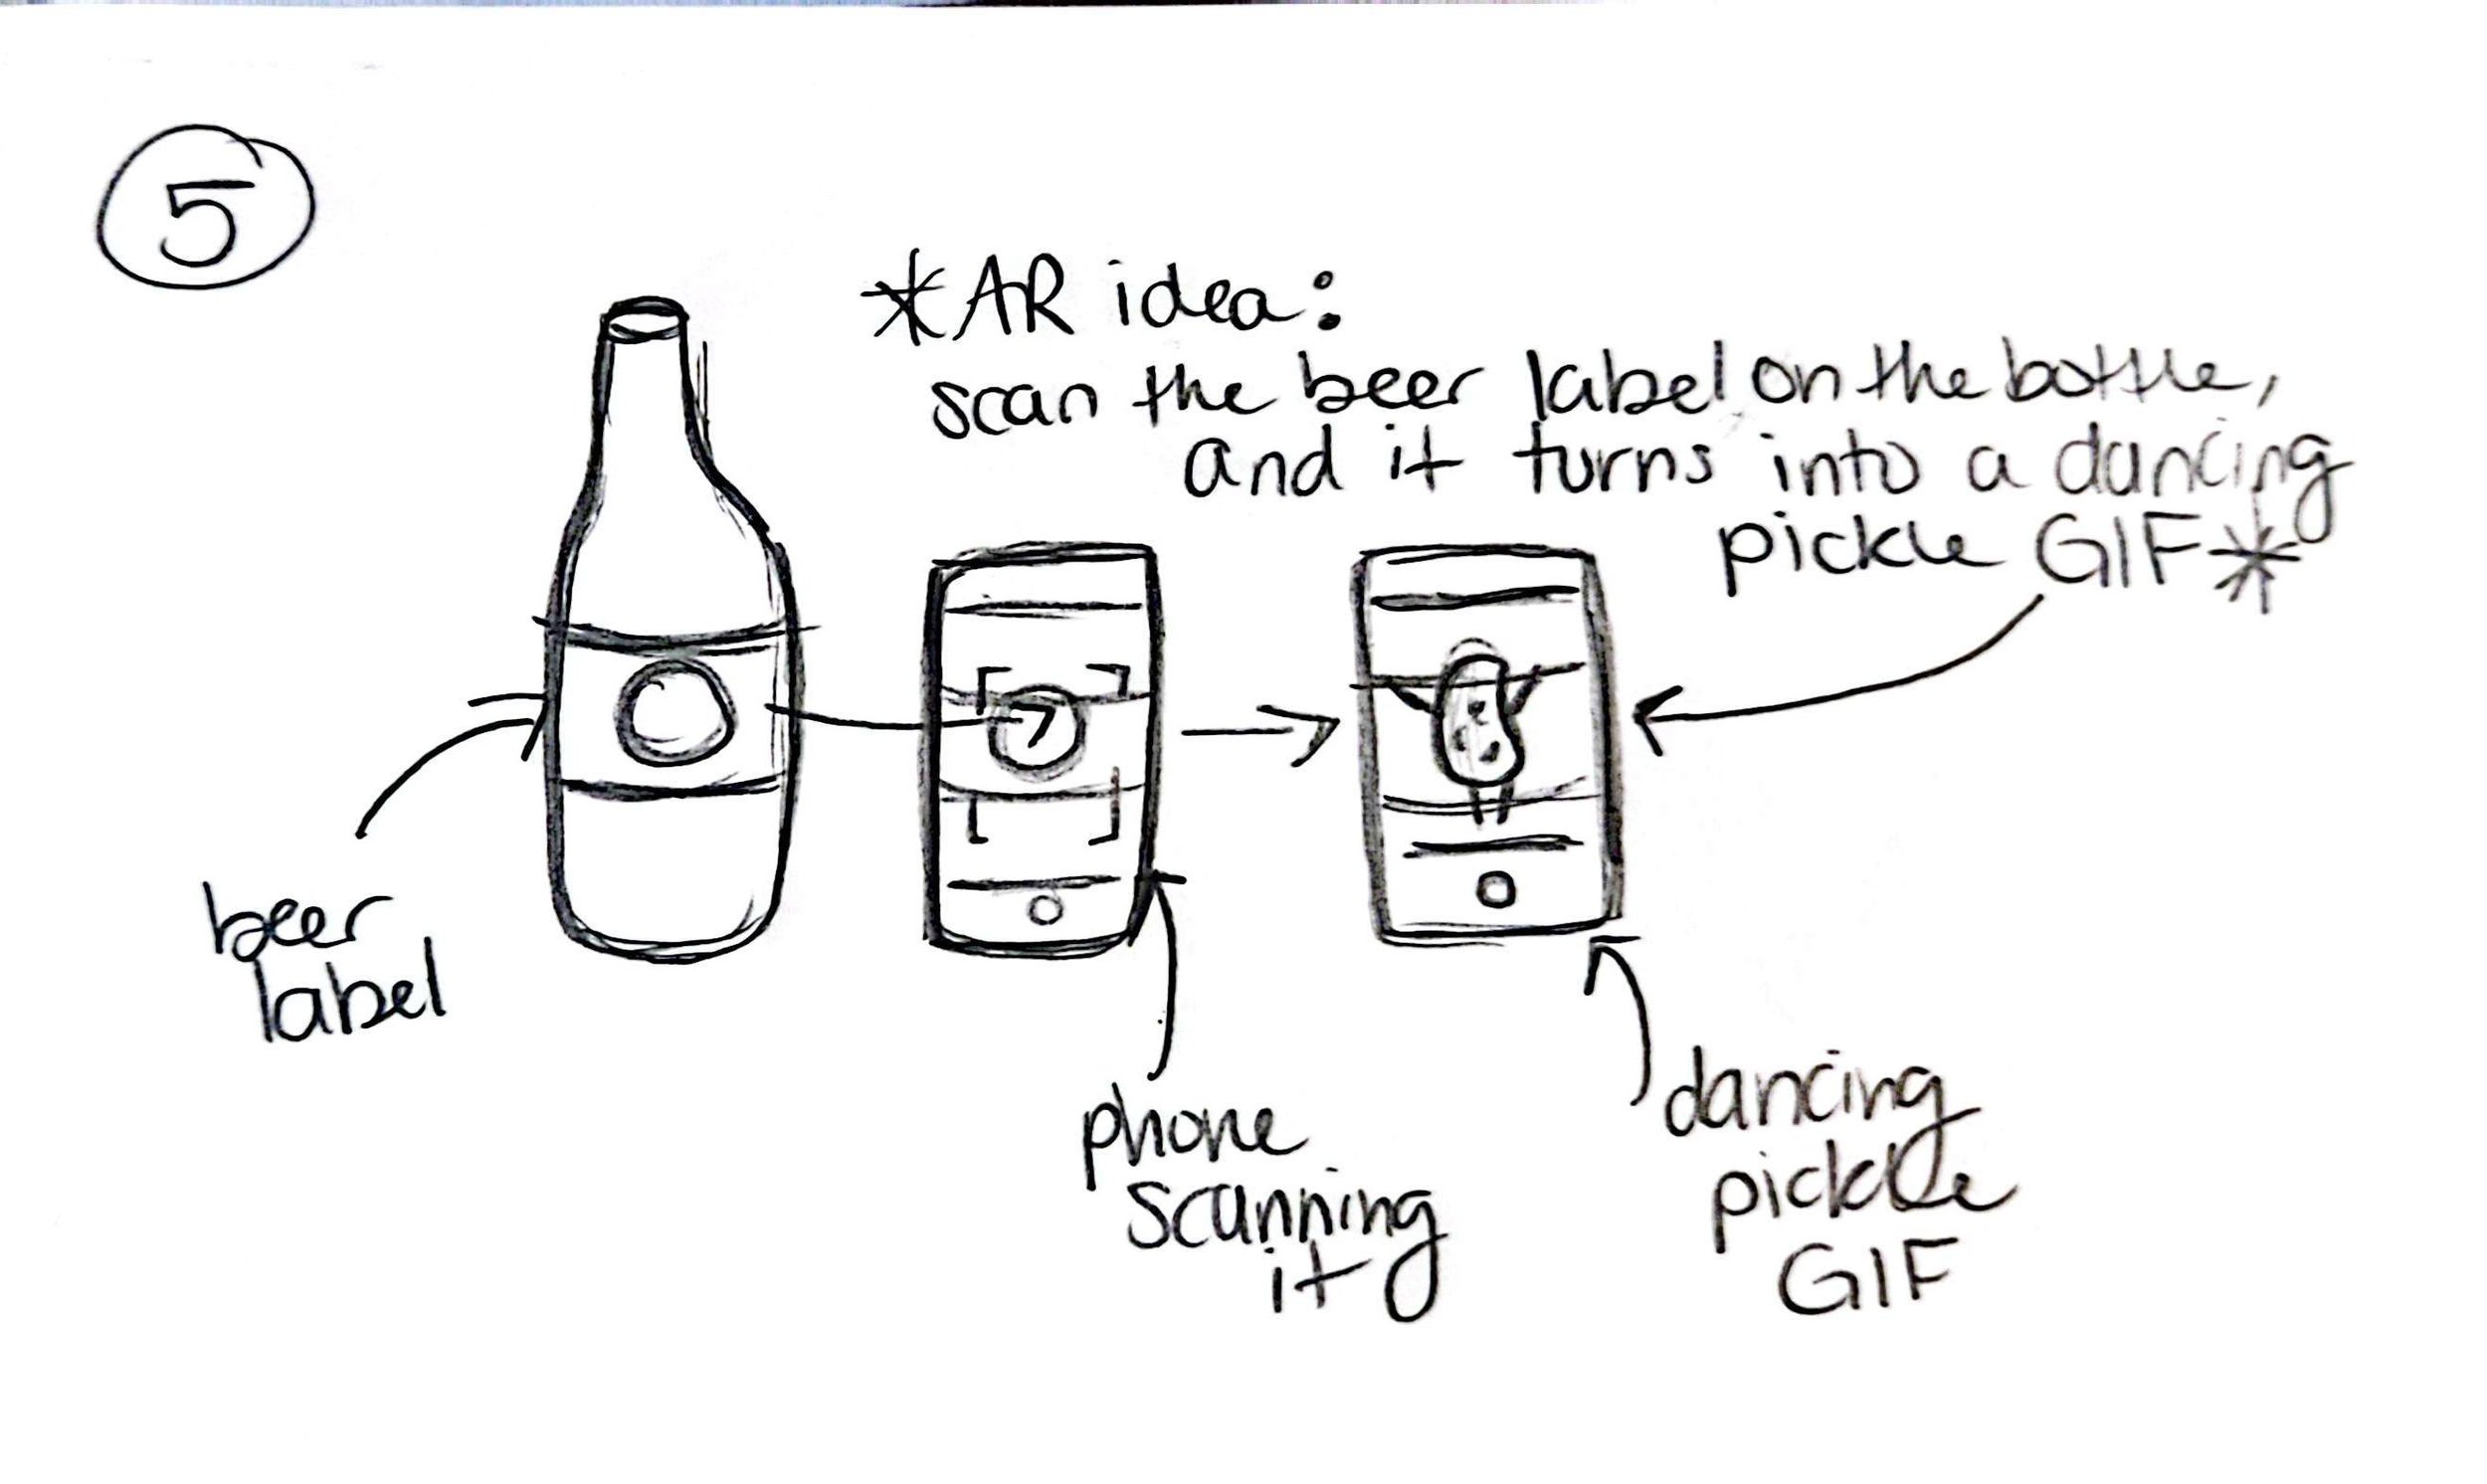 5
*AR idea:
scan the beer label on the bottle,
and it turns into a dancing
pickle GIF*
beer
label
phone
scanning
it
dancing
pickle
GIF